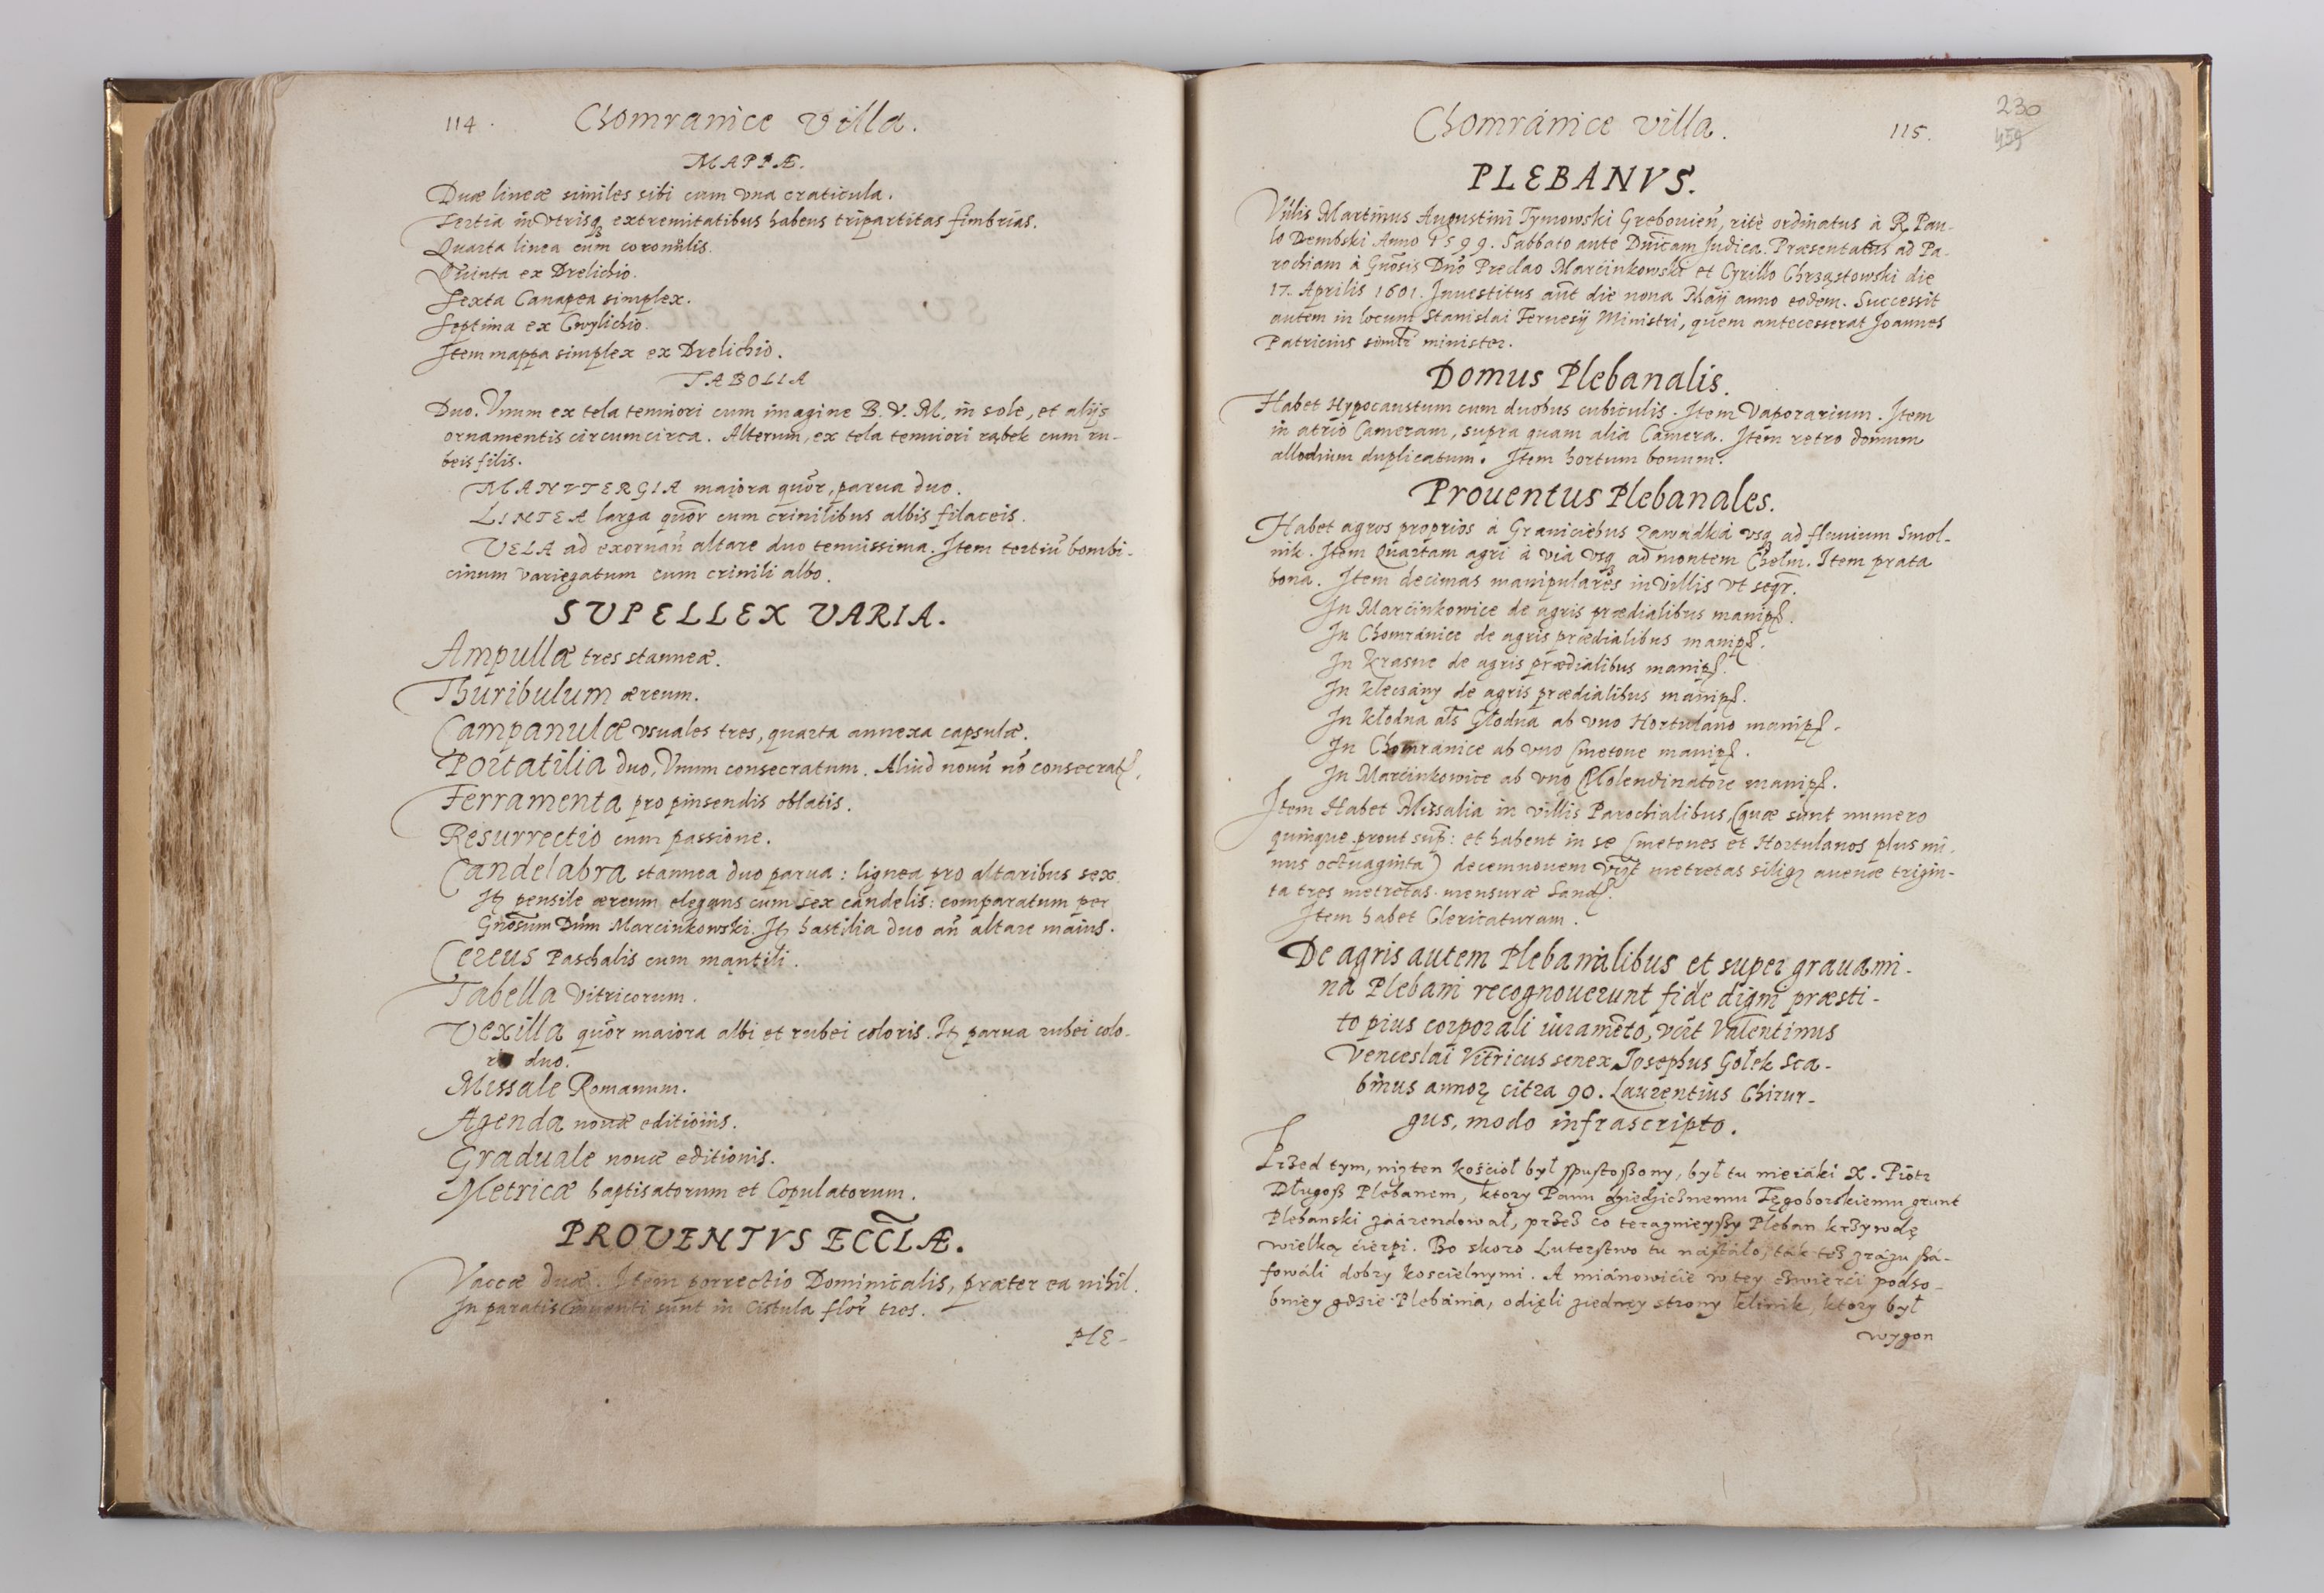 114.
Chomranice villa.
MAPPÆ.
Duæ lineæ similes sibi cum vna craticula.
Tertia in vtrisq₃ extremitatibus habens tripartitas fimbrias.
Quarta linea cum coronulis.
Quinta ex Drelichio.
Sexta Canapea simplex.
Septima ex Cwylichio.
Item mappa simplex ex Drelichio.
TABOLIA
Duo. Vnum ex tela tenuiori cum imagine B. V. M. in sole, et alijs
ornamentis circumcirca. Alterum, ex tela tenuiori rąbek cum ru-
beis filis.
MANVTERGIA maiora quor̃, parua duo.
LINTEA larga quor̃ cum crinilibus albis filaceis.
VELA ad exornan̄ altare duo tenuissima. Item tertiū bombi-
cinum variegatum cum crinili albo.
SUPELLEX VARIA.
Ampullæ tres stanneæ.
Thuribulum æreum.
Campanulæ vsuales tres, quarta annexa capsulæ.
Portatilia duo, Vnum consecratum. Aliud nouū nō consecratꝭ.
Ferramenta pro pinsendis oblatis.
Resurrectio cum passione.
Candelabra stannea duo parua: lignea pro altaribus sex.
Itꝫ pensile æreum elegans cum sex candelis: comparatum per
Gnōsum Dn̄m Marcinkowski. Itꝫ hastilia duo an̄ altare maius.
Cereus Paschalis cum mantili.
Tabella Vitricorum.
Vexilla quor̃ maiora albi et rubei coloris. Itꝫ parua rubei colo-
duo.
Missale Romanum.
Agenda nouæ editionis.
Graduale nouæ editionis.
Metricæ baptisatorum et Copulatorum.
PROVENTVS ECC̃LÆ.
Vaccæ duæ. Item porrectio Dominicalis, præter ea nihil.
In paratis inuenti sunt in Cistula flor̃ tres.
PLE-
Chomránice villa.
115.
230
459
PLEBANVS.
Martinus Augustini Tymowski Grebouien̄, ritè ordinatus à R. Pau-
lo Dembski Anno 1599. Sabbato ante Dn̄icam Judica. Præsentatus ad Pa-
rochiam à Gnōsis Dn̄o Preclao Marcinkowski et Cyrillo Chrząstowski die
17. Aprilis 1601. Inuestitus aūt die nona Maÿ anno eodem. Successit
autem in locum Stanislai Feruesÿ Ministri, quem antecesserat Joannes
Patricius simlr̃ minister.
Domus Plebanalis.
Habet Hypocaustum cum duobus cubiculis. Item Vaporarium. Item
in atrio Cameram, supra quam alia Camera. Item retro domum
allodium duplicatum. Item hortum bonum.
Prouentus Plebanales.
Habet agros proprios à Graniciebus Zawadka vsq₃ ad fluuium Smol-
nik. Item Quartam agri à via vsq₃ ad montem Chełm. Item prata
bona. Item decimas manipulares in villis vt seqr̃.
In Marcinkowice de agris prædialibus manipꝭ.
In Chomránice de agris prædialibus manipꝭ.
In Krasne de agris prædialibus manipꝭ.
In Kleczány de agris prædialibus manipꝭ.
In Kłodna al̃s Głodna ab vno Hortulano manipꝭ.
In Chomranice ab vno Cmetone manipꝭ.
In Marcinkowice ab vno Molendinatore manipꝭ.
Item Habet Missalia in villis Parochialibus, (quæ sunt numero
quinque prout sup̃: et habent in se Cmetones et Hortulanos plus mi-
nus octuaginta) decemnouem metretas siligꝭ auenæ trigin-
ta tres metretas mensuræ Sandꝭ.
Item habet Clericaturam.
De agris autem Plebanalibus et super grauami-
na Plebani recognouerunt fide digni præsti-
to prius corporali iuramēto, Valentinus
Venceslai Vitricus senex Josephus Gołek Sca-
binus annoꝝ citra 90. Laurentius Chirur-
gus, modo infrascripto.
Przed tym, niż ten kościoł był spustoszony, był tu nieiáki X. Piotr
Długosz Plebanem, ktory Panu dziedzicznemu Tęgoborskiemu grunt
Plebanski zaárendował, przez co teragnieyszy Pleban krzywdę
wielką cierpi. Bo skoro Luterstwo tu nástáło, ták też zrázu szá-
fowáli dobry koscielnymi. A miánowićie w tey ćwierći podło-
bniey gdzie Plebánia, odięli ziedney strony klinik, ktory był
wygon